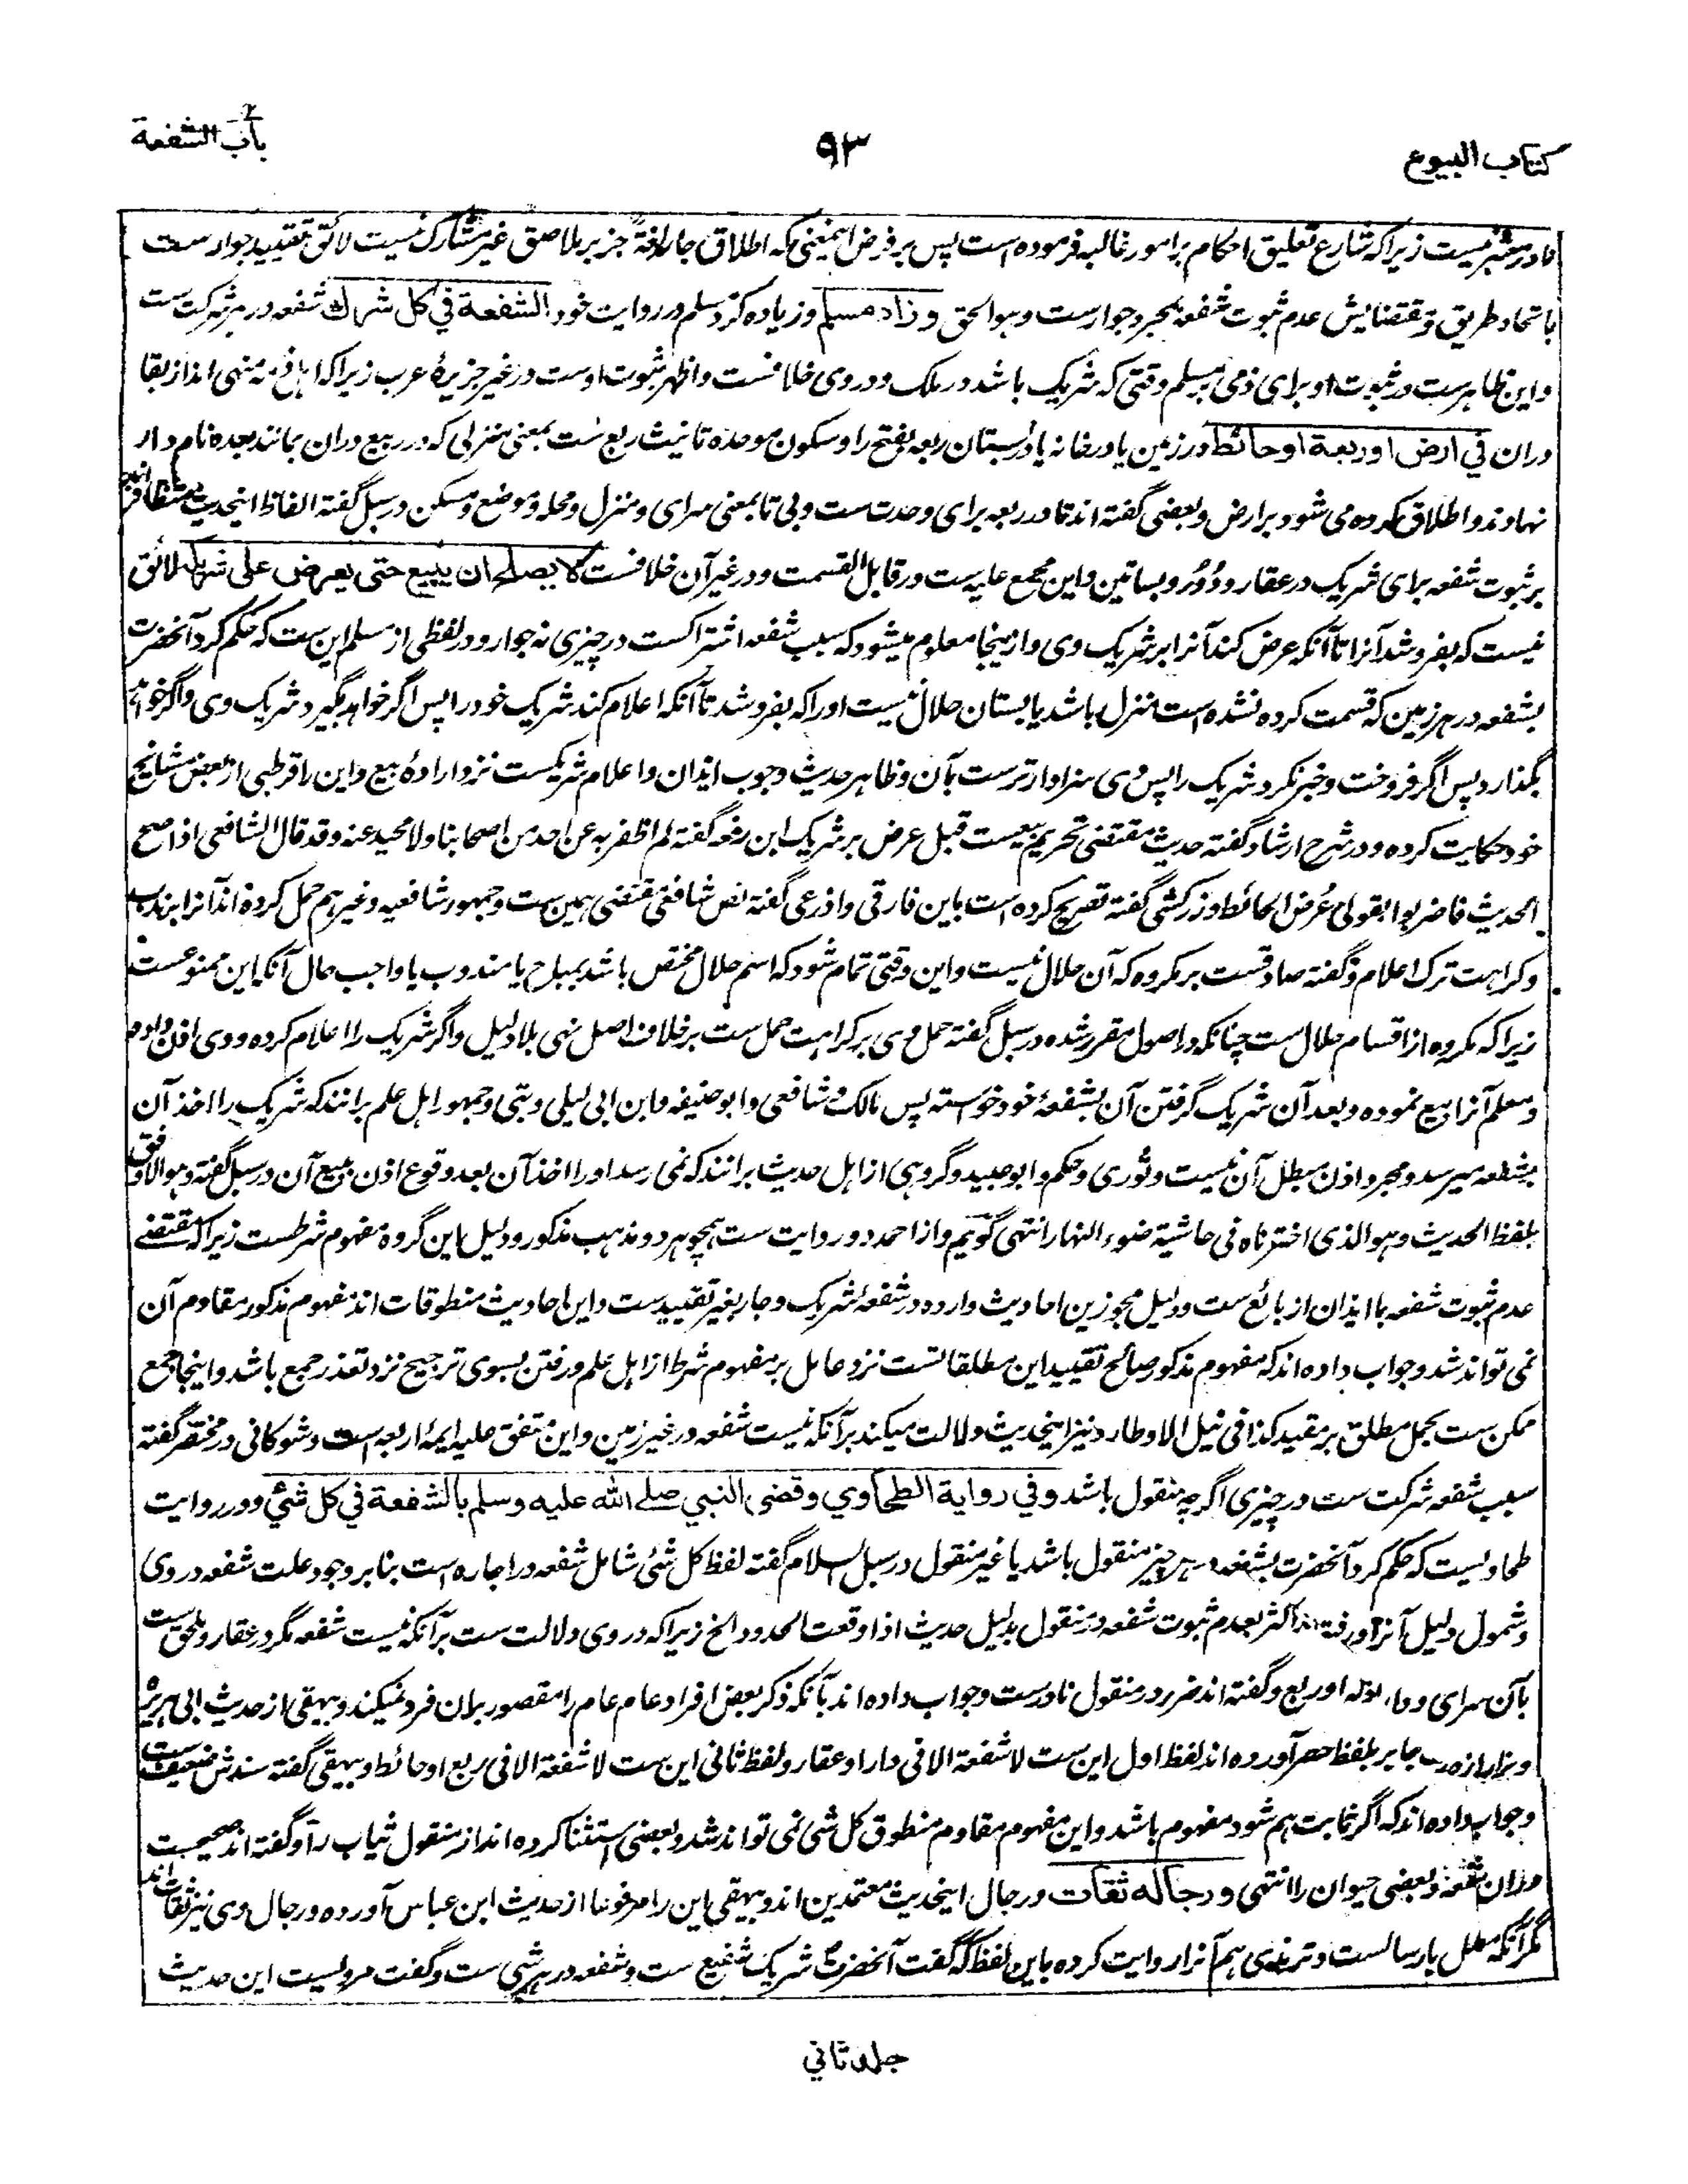 کتاب البیوع
۹۳
باب الشفعة
نادر معتبر نیست زیرا که شارع تعلیق احکام بر امور غالبه فرموده است پس بر فرض اینمعنی که اطلاق جار لغةً جز بر ملاصق غیر مشارک نیست لائق تقیید جوار ست
باتحاد طریق و مقتضایش عدم ثبوت شفعه بمجرد جوارست وهو الحق وزاد مسلم و زیاده کرد مسلم در روایت خود الشفعة في كل شرك شفعه در هر شرکت ست
واین ظاهرست در ثبوت او برای ذمی بر مسلم وقتی که شریک باشد در ملک و در وی خلافست و اظهر ثبوت اوست در غیر جزیرهٔ عرب زیرا که اهل ذمه منهی اند از بقا
دران في ارض او ربعة او حائط در زمین یا در خانه یا در بستان ربعه بفتح را و سکون موحده تانیث ربع ست بمعنی منزلی که در ربیع دران بمانند بعده نام دار
نهادند و اطلاق کرده می شود بر ارض و بعضی گفته اند تا در ربعه برای وحدت ست و بی تا بمعنی سرای و منزل و محله و موضع و مسکن در سبل گفته الفاظ اینحدیث متظافر اند
بر ثبوت شفعه برای شریک در عقار و دُوْر و بساتین و این مجمع علیه ست در قابل القسمت و در غیر آن خلافست لا یصلح ان یبیع حتی یعرض علی شریکه لائق
نیست که بفروشد آنرا تا آنکه عرض کند آنرا بر شریک وی و از ینجا معلوم میشود که سبب شفعه اشتراکست در چیزی نه جوار و در لفظی از مسلم این ست که حکم کرد آنحضرت
بشفعه در هر زمین که قسمت کرده نشده است منزل باشد یا بستان حلال نیست او را که بفروشد تا آنکه اعلام کند شریک خود را پس اگر خواهد بگیرد شریک وی و اگر خواهد
بگذارد پس اگر فروخت و خبر نکرد شریک را پس وی سزاوارترست بآن و ظاهر حدیث وجوب ایذان و اعلام شریکست نزد ارادهٔ بیع و این را قرطبی از بعض مشایخ
خود حکایت کرده و در شرح ارشاد گفته حدیث مقتضی تحریم بیعست قبل عرض بر شریک ابن رفعه گفته لم اظفر به عن احد من اصحابنا ولا محید عنه وقد قال الشافعی اذا صح
الحدیث فاضربوا بقولی عُرض الحائط و زرکشی گفته تصریح کرده است باین فارقی و اذرعی گفته نص شافعی مقتضی همین ست و جمهور شافعیه و غیرهم حمل کرده اند آنرا بر ندب
وکراهت ترک اعلام و گفته صادقست بر مکروه که آن حلال نیست و این وقتی تمام شود که اسم حلال مختص باشد بمباح یا مندوب یا واجب حال آنکه این ممنوعست
زیرا که مکروه از اقسام حلال ست چنانکه در اصول مقرر شده در سبل گفته حمل وی بر کراهت حمل ست بر خلاف اصل نهی بلا دلیل و اگر شریک را اعلام کرده و وی اذن داده
و معلم آنرا بیع نموده و بعد آن شریک گرفتن آن بشفعهٔ خود خواسته پس مالک و شافعی و ابو حنیفه و ابن ابی لیلی و بتی و جمهور اهل علم برانند که شریک را اخذ آن
بشفعه میرسد و مجرد اذن مبطل آن نیست و ثوری و حکم و ابو عبید و گروهی از اهل حدیث برانند که نمی رسد او را اخذ آن بعد وقوع اذن ببیع آن در سبل گفته وهو الاوفق
بلفظ الحدیث وهو الذی اخترناه فی حاشیة ضوء النهار انتهی گویم و از احمد دو روایت ست همچو هر دو مذهب مذکور و دلیل این گروه مفهوم شرطست زیرا که مقتضے
عدم ثبوت شفعه با ایذان از بائع ست و دلیل مجوزین احادیث وارده در شفعهٔ شریک و جار بغیر تقیید ست و این احادیث منطوقات اند مفهوم مذکور مقاوم آن
نمی تواند شد و جواب داده اند که مفهوم مذکور صالح تقیید این مطلقاتست نزد عامل بر مفهوم شرط از اهل علم و رفتن بسوی ترجیح نزد تعذر جمع باشد و اینجا جمع
ممکن ست بحمل مطلق بر مقید کذا فی نیل الاوطار و نیز اینحدیث دلالت میکند بر آنکه نیست شفعه در غیر زمین و این متفق علیه ایمهٔ اربعه است و شوکانی در مختصر گفته
سبب شفعه شرکت ست در چیزی اگرچه منقول باشد وفي رواية الطحاوي وقضى النبي صلے الله علیه وسلم بالشفعة في كل شيء و در روایت
طحاویست که حکم کرد آنحضرت بشفعه در هر چیز منقول باشد یا غیر منقول در سبل السلام گفته لفظ کل شئ شامل شفعه در اجاره است بنا بر وجود علت شفعه در وی
و شمول دلیل آنرا و رفته اند اکثر بعدم ثبوت شفعه در منقول بدلیل حدیث اذا وقعت الحدود الخ زیرا که در وی دلالت ست بر آنکه نیست شفعه مگر در عقار و ملحق ست
بآن سرای و دار لقوله او ربع و گفته اند ضرر در منقول نادرست و جواب داده اند بآنکه ذکر بعض افراد عام عام را مقصور بران فرد نمیکند و بیهقی از حدیث ابی هریره
و بزار از جابر بلفظ حصر آورده اند لفظ اول این ست لا شفعة الا فی دار او عقار و لفظ ثانی این ست لا شفعة الا فی ربع او حائط و بیهقی گفته سندش ضعیف ست
و جواب داده اند که اگر ثابت هم شود مفهوم باشد و این مفهوم مقاوم منطوق کل شئ نمی تواند شد و بعضی استثنا کرده اند از منقول ثیاب را و گفته اند صحیحست
دران شفعه و بعضی حیوان را انتهی ورجاله ثقات و رجال اینحدیث معتمدین اند و بیهقی این را مرفوعا از حدیث ابن عباس آورده و رجال وی نیز ثقات اند
مگر آنکه معلل بارسالست و ترمذی هم آنرا روایت کرده باین لفظ که گفت آنحضرت شریک شفیع ست و شفعه در هر شئ ست و گفت مرویست این حدیث
جلد ثاني